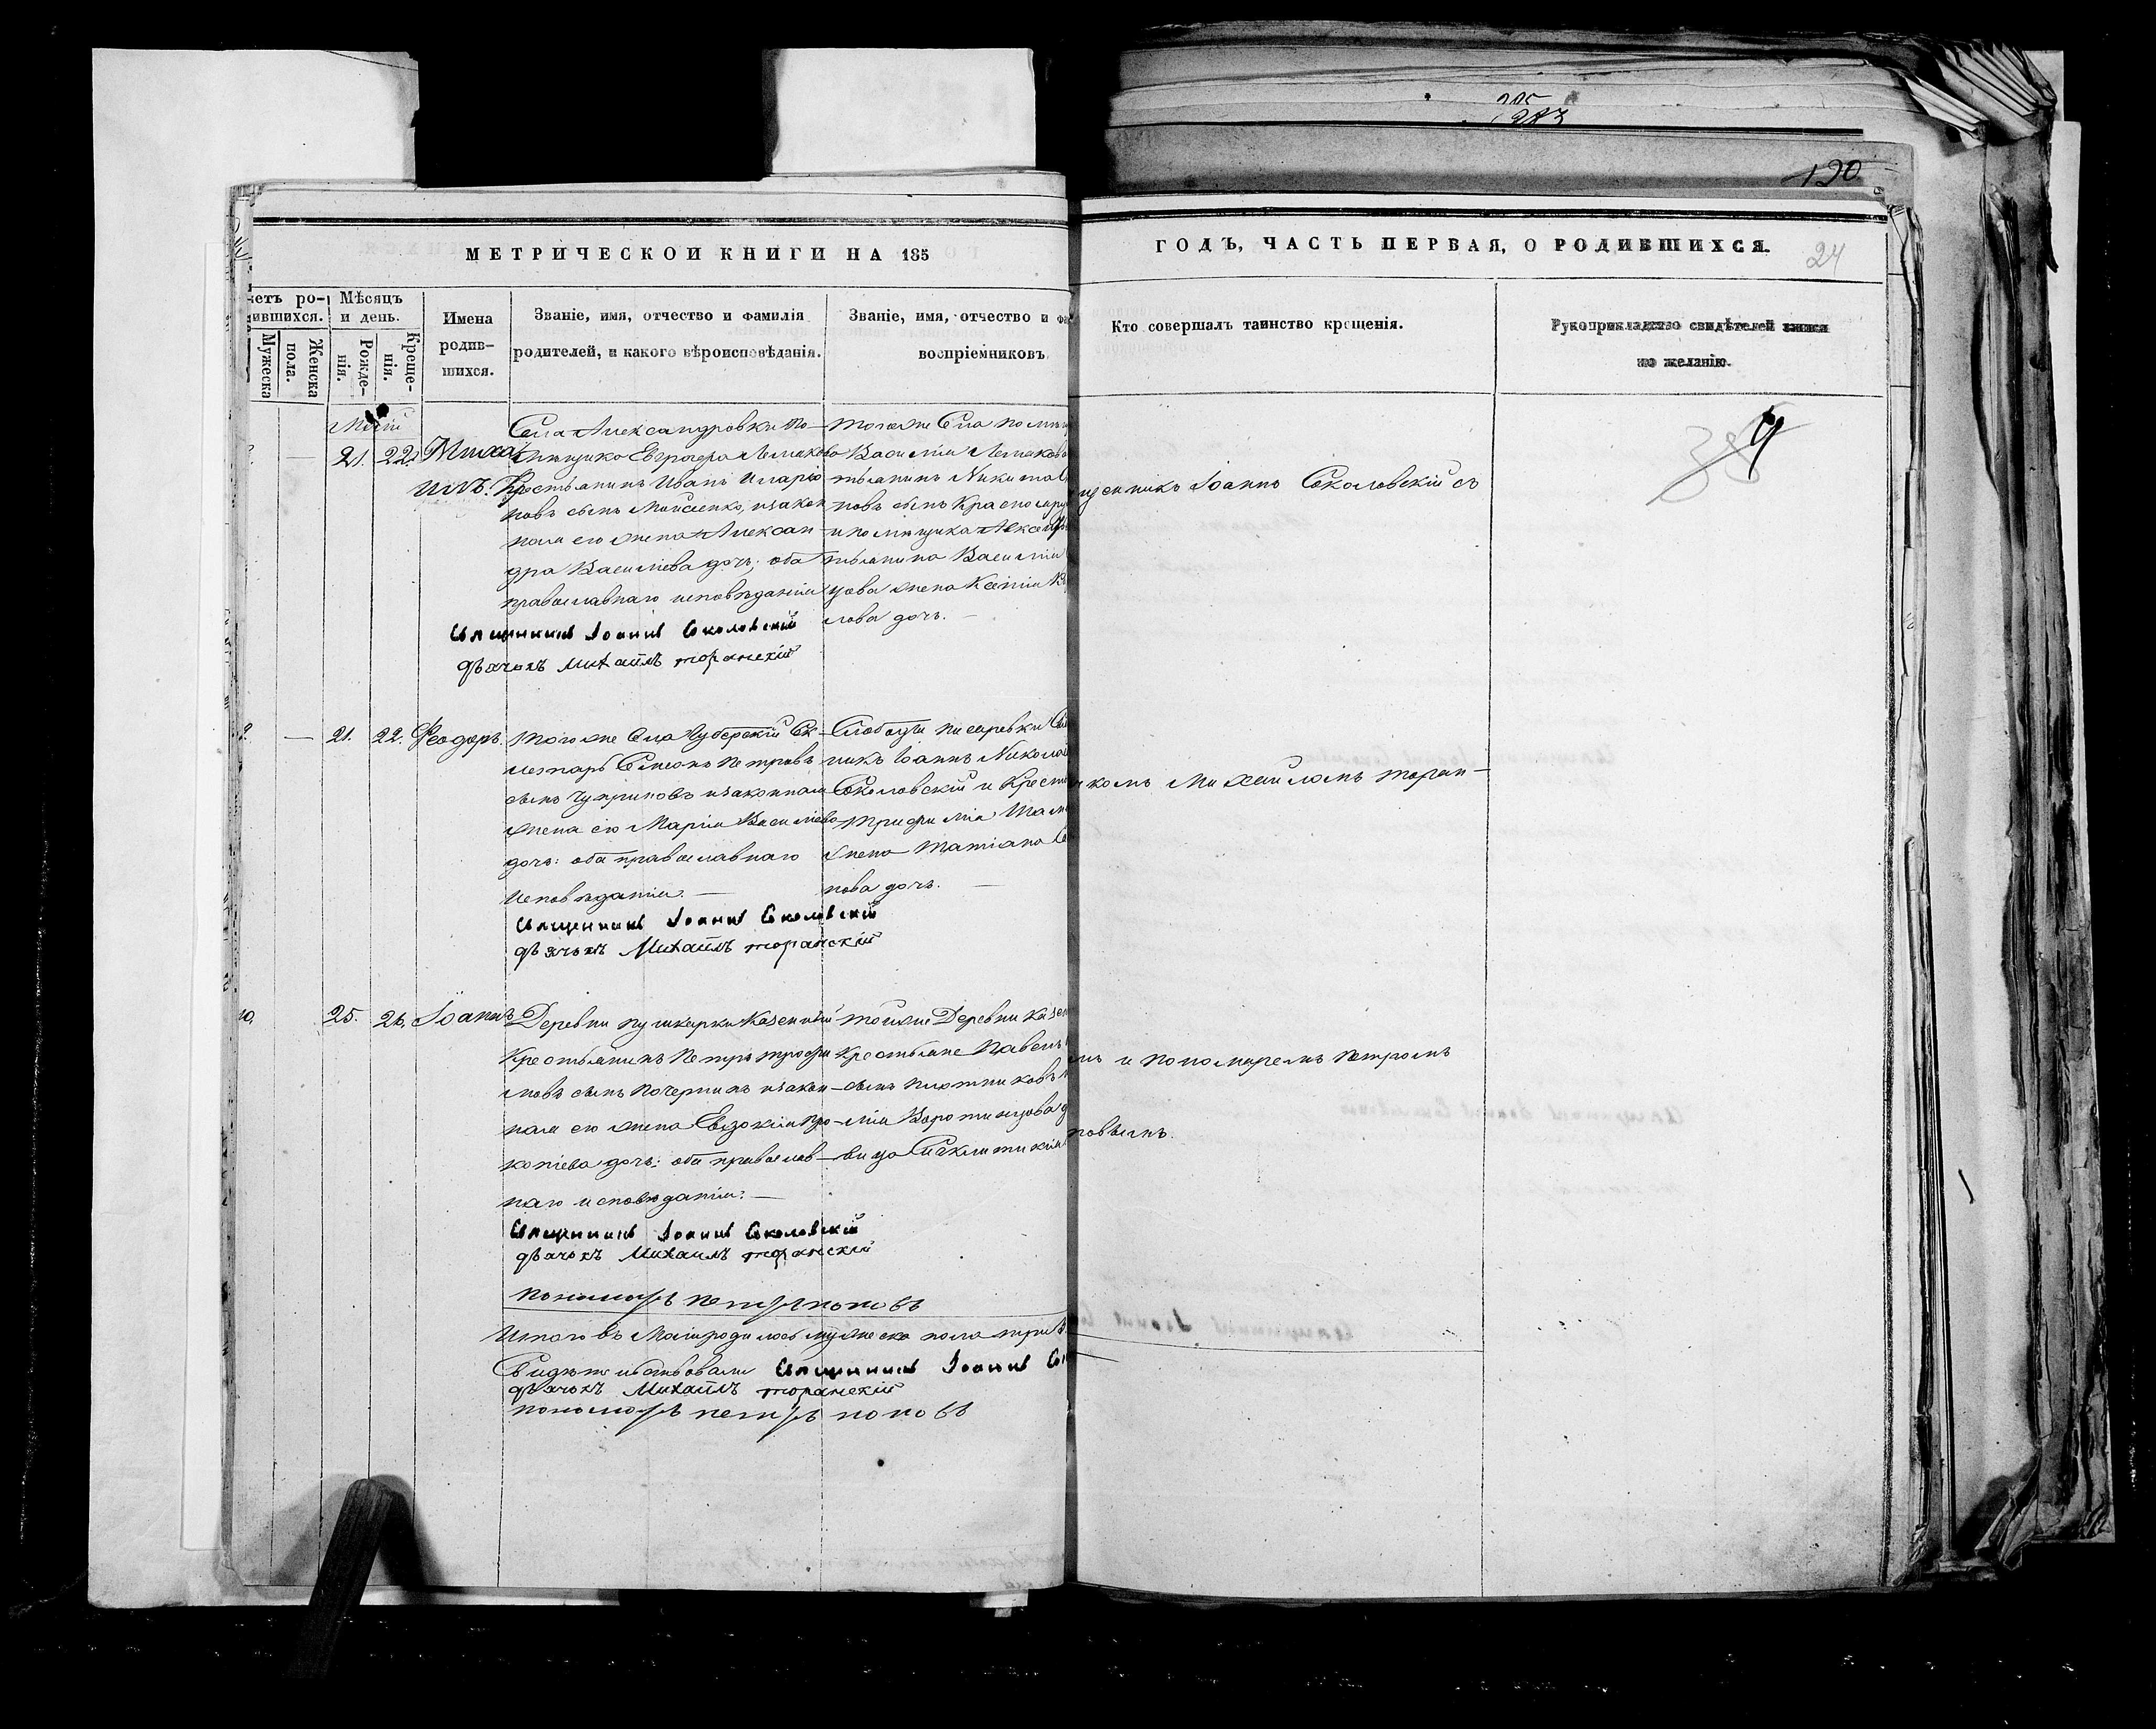 190
МЕТРИЧЕСКОЙ КНИГИ НА 185
ГОДЪ, ЧАСТЬ ПЕРВАЯ, О РОДИВШИХСЯ.
24
четъ ро-
дившихся.
Мужеска
Женска
пола.
Мѣсяцъ
и день.
Рожде-
нія.
Креще-
нія.
Имена
родив-
шихся.
Званіе, имя, отчество и фамилія
родителей, и какого вѣроисповѣданія.
Званіе, имя, отчество и фа
воспріемниковъ
Кто совершалъ таинство крещенія.
Рукоприкладство свидѣтелей записи
по желанію.
Май
21. 22. Миха
илъ.
Села Александровки по-
мѣщика Евграфа
Крестьянинъ Иванъ Иларіо
новъ сынъ Моисѣенко, и закон
ная его жена Алексан-
дра Васильева дочь; оба
православнаго исповѣданія
Священникъ Іоаннъ Соколовскій
дьячокъ Михаилъ торанскій
тогоже Села помѣщ
Василія
тьянинъ Никита
новъ сынъ
и помѣщика Алексѣ
тьянина Василія
цова жена Ксенія
лова дочь.
щенникъ Іоаннъ Соколовскій съ
21. 22. Феодоръ.
тогоже Села Губерскій Се-
кретарь Симеонъ Петровъ
сынъ Чуприновъ и законная
жена его Марія Васильева
дочь: оба православнаго
Исповѣданія.
Священникъ Іоаннъ Соколовскій
дьячокъ Михаилъ торанскій
Слободы писаревки Свя
никъ Іоаннъ Никола
Соколовскій и Крест
жена Татіана
нова дочь.
комъ Михаиломъ торан-
10. 25. 26. Іоаннъ
Деревни пушкарки Казенный
Крестьянинъ Петръ трофи
мовъ сынъ почернинъ и закон-
ная его жена Евдокія Про-
копіева дочь: оба православ-
наго исповѣданія.
Священникъ Іоаннъ Соколовскій
дьячокъ Михаилъ торанскій
пономарь петръ поповъ
тойже Деревни казен
Крестьяне Павелъ
сынъ плотниковъ
вица
мъ и пономаремъ Петромъ
повымъ.
Итого въ Маіи родилось мужеска пола три
Свидѣтельствовали Священникъ Іоаннъ Со
дьячокъ Михаилъ торанскій
пономарь петръ поповъ